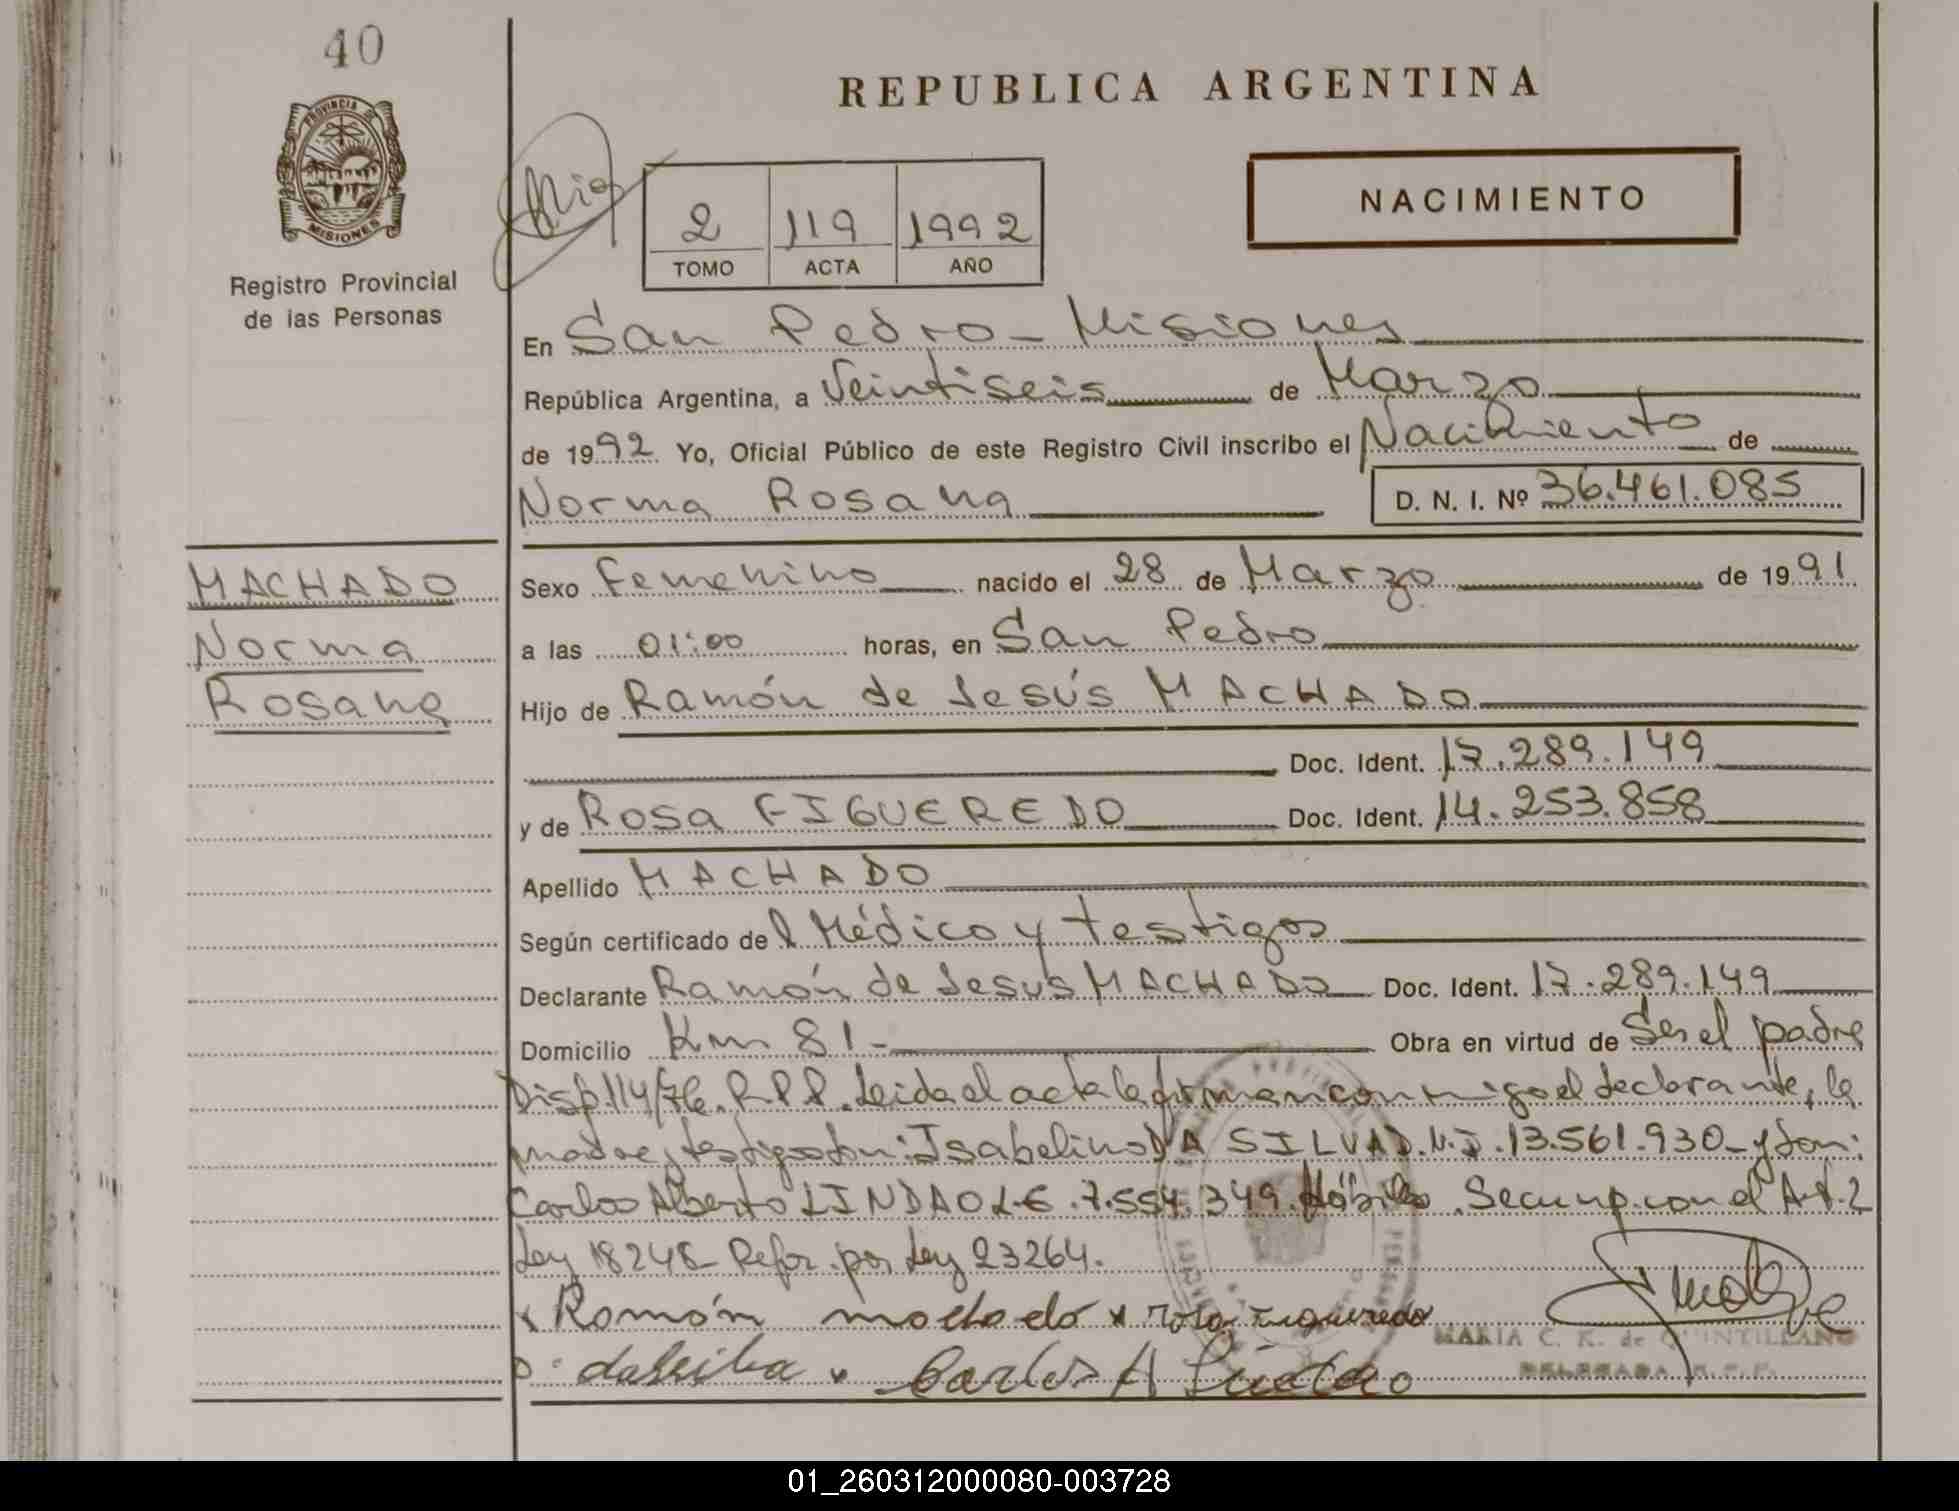 40
PROVINCIA DE
MISIONES
Registro Provincial
de las Personas
REPUBLICA ARGENTINA
NACIMIENTO
2 119 1992
TOMO ACTA AÑO
En San Pedro - Misiones
República Argentina, a Veintiseis de Marzo
de 1992 Yo, Oficial Público de este Registro Civil inscribo el Nacimiento de
Norma Rosana D. N. I. Nº 36.461.085
MACHADO
Norma
Rosana
Sexo Femenino nacido el 28 de Marzo de 1991
a las 01:00 horas, en San Pedro
Hijo de Ramón de Jesús MACHADO
Doc. Ident. 17.289.149
y de Rosa FIGUEREDO Doc. Ident. 14.253.858
Apellido MACHADO
Según certificado del Médico y testigos
Declarante Ramón de Jesus MACHADO Doc. Ident. 17.289.149
Domicilio Km 81- Obra en virtud de Ser el padre
Disp.114/76. R.P.P. Leida el acta la firman conmigo el declarante, la
madre y testigos don: Isabelino DA SILVA D.N.I. 13.561.930 - y don:
Carlos Alberto LINDAO L.E. 7.554.349. Hábiles. Se cump. con el Art. 2
Ley 18248 - Refor. por Ley 23264.
x Ramón machado x rosa Figueredo
dasilba x Carlos A Lindao
MARIA C. K. de QUINTILLANO
DELEGADA R.P.P.
01_260312000080-003728